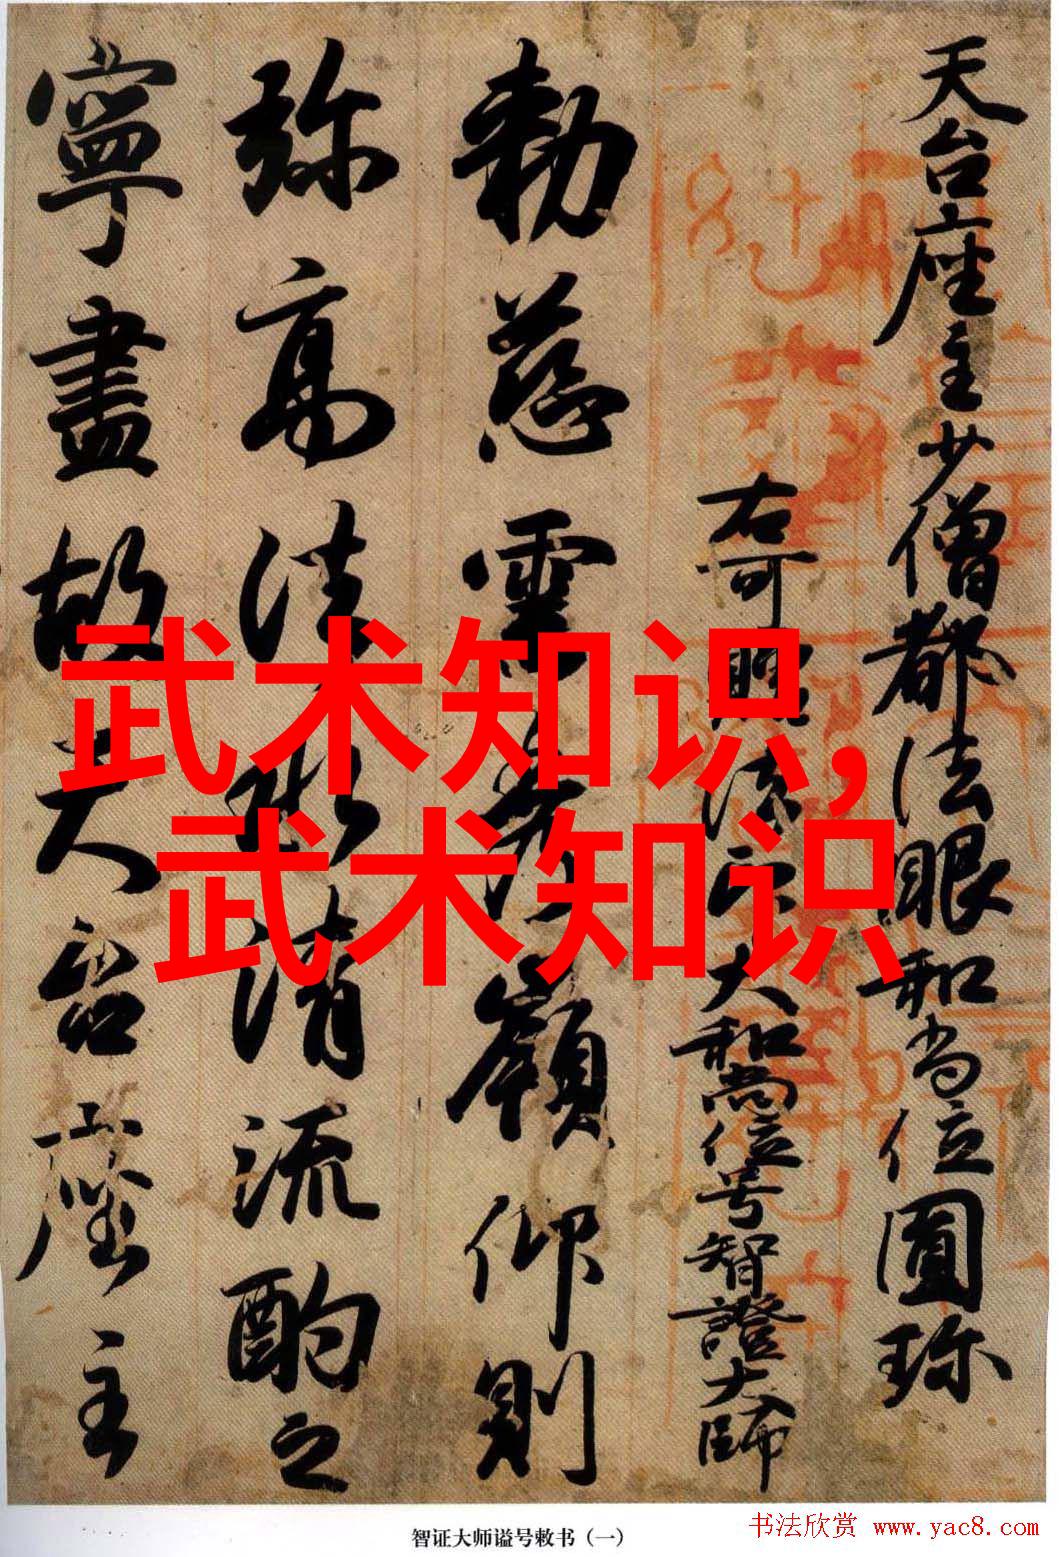 天台座主少僧都法眼和尚位圓珎
右可贈法印大和尚位号智證大師
勅慈雲秀嶺仰則
弥高法水清流酌之
寧盡故天台座主
武术知识,
武术知识
智证大师谥号敕书（一）
书法欣赏 www.yac8.com